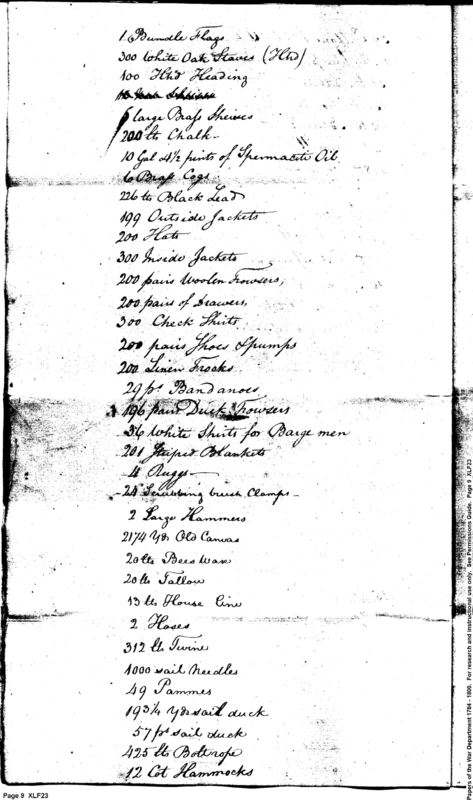 1 Bundle Flags
300 White Oak Staves (Hhd)
100 Hhd Heading
6 large Brass Sheives
200 lb Chalk
10 Gal 4½ pints of Spermacete Oil
6 Brass Cogs
226 lb Black Lead
199 Outside Jackets
200 Hats
300 Inside Jackets
200 pairs Woolen Trowsers,
200 pairs of Drawers,
300 Check Shirts
200 pairs Shoes & pumps
200 Linen Frocks
29 ps Bandanoes
196 pairs Duck Trowsers
36 White Shirts for Barge men
201 Striped Blankets
4 Ruggs
24 Scrubbing brush Clamps
2 Large Hammers
2174 Yds Old Canvas
20 lb Bees Wax
20 lb Tallow
13 lb House line
2 Hoses
312 lb Twine
1000 sail needles
49 Pammes
193¼ Yds sail duck
57 ps sail duck
425 lb Bolt rope
12 Cot Hammocks
Page 9 XLF23
Papers of the War Department 1784 - 1800. For research and instructional use only. See Permissions Guide. Page 9 XLF23